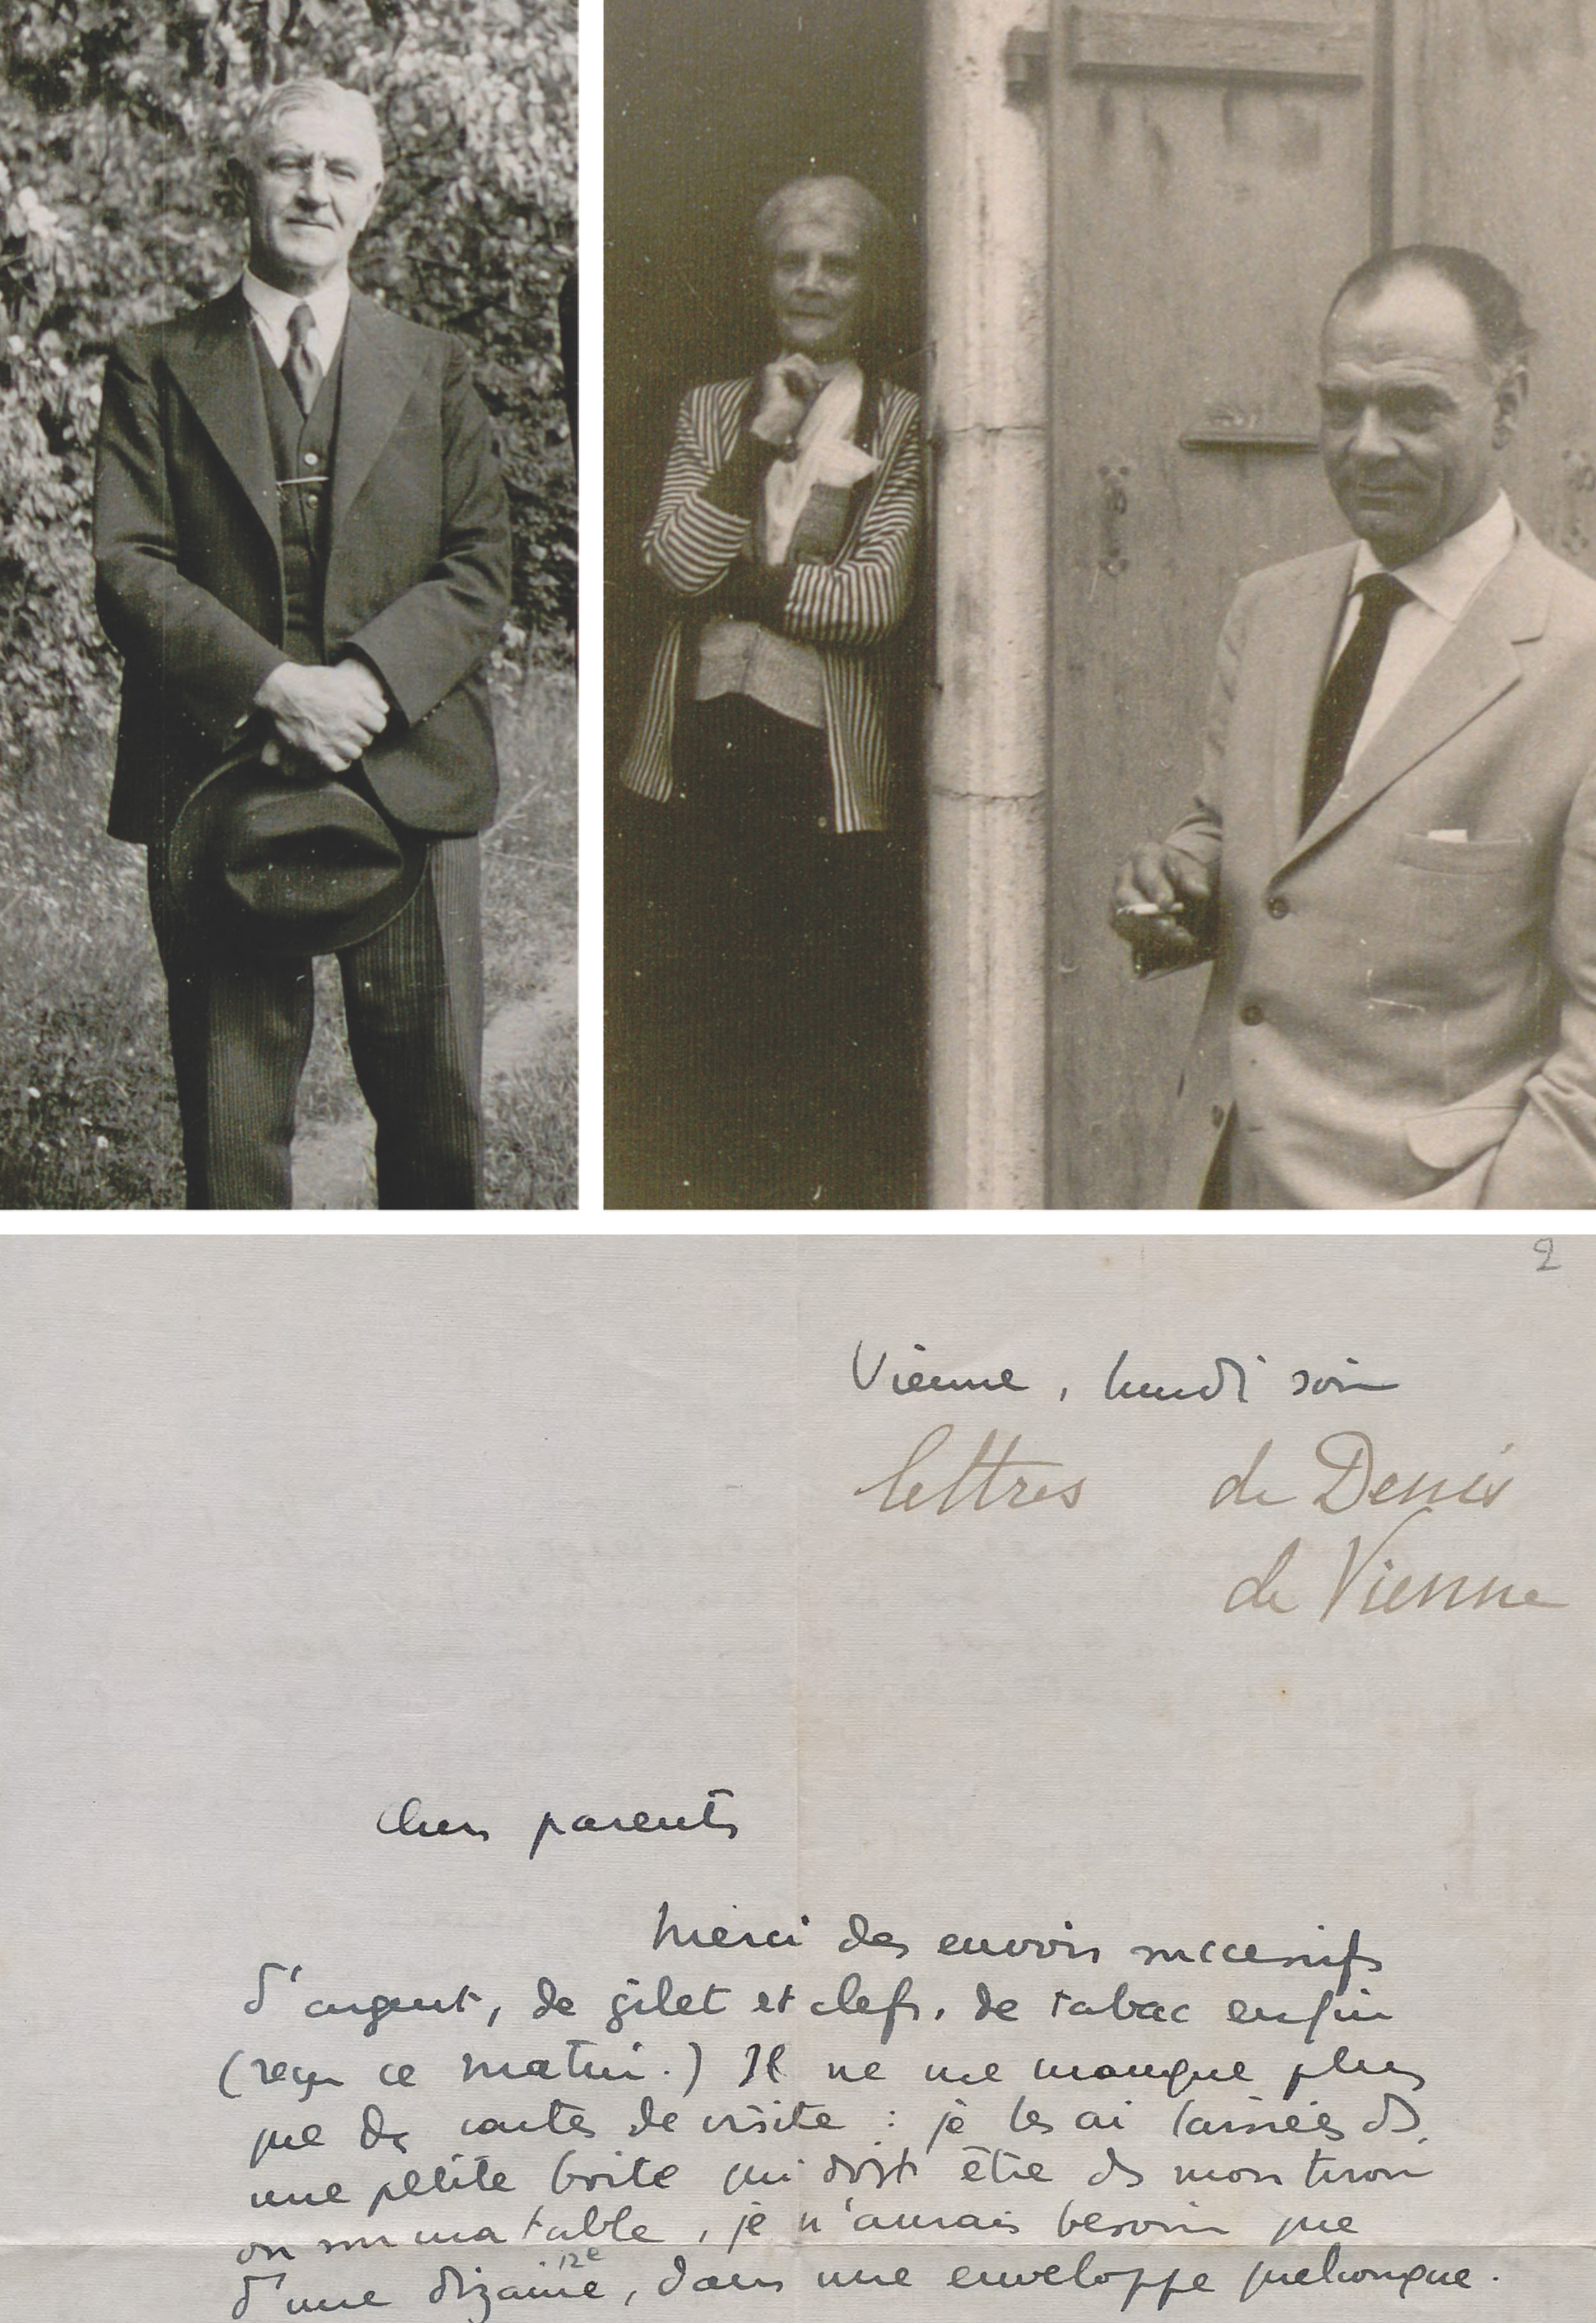 2
Vienne, lundi soir
lettres de Denis
de Vienne
Chers parents
Merci des envois successifs
d'argent, de gilet et clefs, de tabac enfin
(reçu ce matin.) Il ne me manque plus
que des cartes de visite : je les ai laissées ds.
une petite boîte qui doit être ds mon tiroir
ou sur ma table, je n'aurais besoin que
d'une dizaine, dans une enveloppe quelconque.